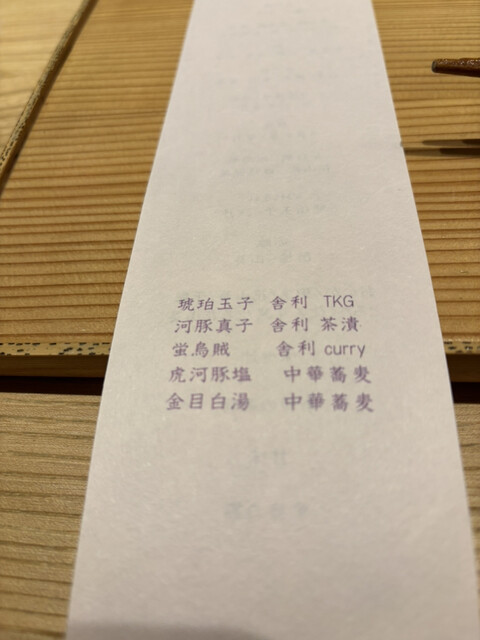 琥珀玉子 舎利 TKG
河豚真子 舎利 茶漬
蛍烏賊 舎利 curry
虎河豚塩 中華蕎麦
金目白湯 中華蕎麦